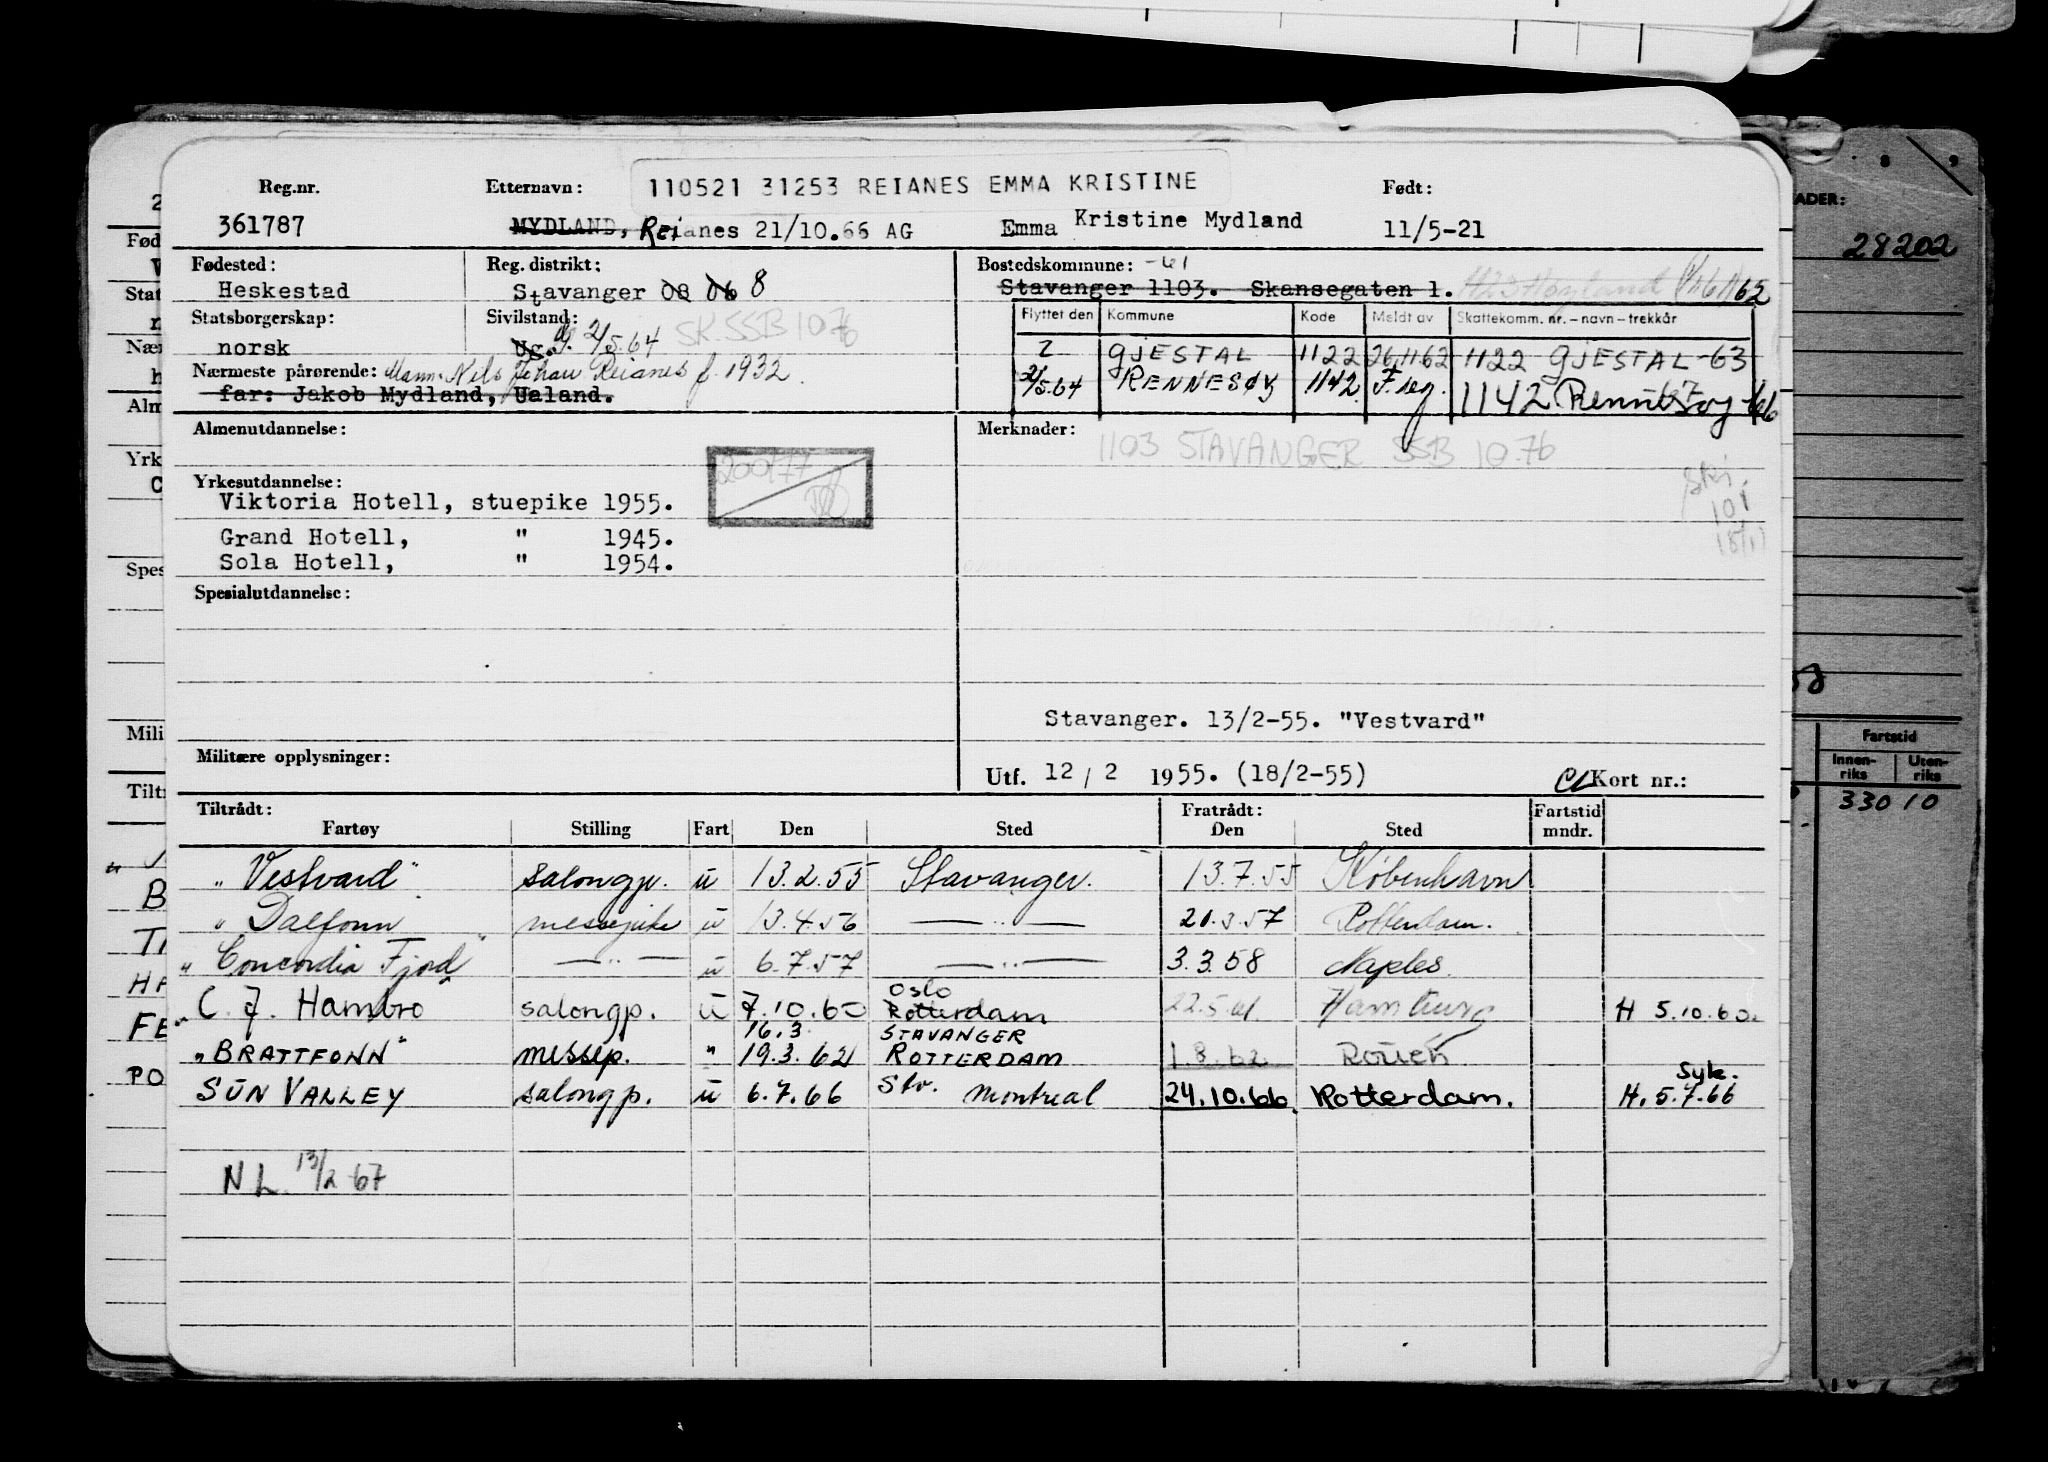 Reg.nr. Etternavn: 110521 31253 REIANES EMMA KRISTINE Født:
361787 MYDLAND, Reianes 21/10.66 AG Emma Kristine Mydland 11/5-21
Fødested: Reg. distrikt: Bostedskommune: -61
Heskestad Stavanger 08 06 8 Stavanger 1103. Skansegaten 1.
Statsborgerskap: Sivilstand: Flyttet den Kommune Kode Meldt av Skattekomm. nr. – navn – trekkår
norsk Ug. g. 2/5.64 SK. SSB 10 76 2 GJESTAL 1122 26/1162 1122 GJESTAL -63
Nærmeste pårørende: Mann. Nils Johan Reianes f. 1932. 2/5.64 RENNESØY 1142 F.reg. 1142 Rennesøy -66
far: Jakob Mydland, Ualand.
Almenutdannelse: Merknader: 1103 STAVANGER SSB 10.76
Yrkesutdannelse:
Viktoria Hotell, stuepike 1955.
Grand Hotell, " 1945.
Sola Hotell, " 1954.
Spesialutdannelse:
Stavanger. 13/2-55. "Vestvard"
Militære opplysninger: Utf. 12 / 2 1955. (18/2-55) Kort nr.:
Tiltrådt: Fratrådt: Fartstid
Fartøy Stilling Fart Den Sted Den Sted mndr.
"Vestvard" salongp. u 13.2.55 Stavanger. 13.7.55 København
"Dalfonn messepike u 13.4.56 — " — 21.3.57 Rotterdam.
"Concordia Fjord" — " — u 6.7.57 — " — 3.3.58 Naples.
C. J. Hambro salongp. u 7.10.60 Oslo Rotterdam 22.5.61 Hamburg H 5.10.60.
16.3 STAVANGER
"BRATTFONN" messep. " 19.3.62 ROTTERDAM 1.8.62 Rouen
SUN VALLEY salongp. u 6.7.66 Stv. Montreal 24.10.66. Rotterdam. Syk. H. 5.7.66
NL. 13/2-67
ADER:
28202
Fartstid
Innen-riks Uten-riks
330 10
Fød
Stat
Nær
Alm
Yrk
Spes
Mili
Tilt
B
HA
FE
PO